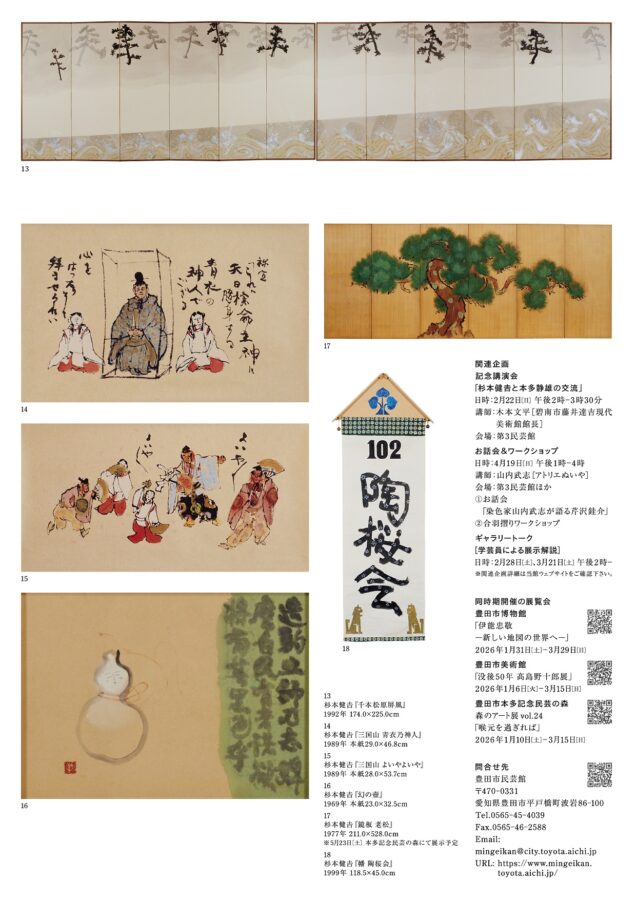 13
14
15
16
17
102
陶桜会
18
よいや
よいや
13
杉本健𠮷『千本松原屏風』
1992年 174.0×225.0cm
14
杉本健𠮷『三国山 青衣乃神人』
1989年 本紙29.0×46.8cm
15
杉本健𠮷『三国山 よいやよいや』
1989年 本紙28.0×53.7cm
16
杉本健𠮷『幻の壺』
1969年 本紙23.0×32.5cm
17
杉本健𠮷『鏡板 老松』
1977年 211.0×528.0cm
※5月23日[土] 本多記念民芸の森にて展示予定
18
杉本健𠮷『幡 陶桜会』
1999年 118.5×45.0cm
関連企画
記念講演会
「杉本健𠮷と本多静雄の交流」
日時:2月22日[日] 午後2時−3時30分
講師:木本文平[碧南市藤井達吉現代
美術館館長]
会場:第3民芸館
お話会&ワークショップ
日時:4月19日[日] 午後1時−4時
講師:山内武志[アトリエぬいや]
会場:第3民芸館ほか
①お話会
「染色家山内武志が語る芹沢銈介」
②合羽摺りワークショップ
ギャラリートーク
[学芸員による展示解説]
日時:2月28日[土]、3月21日[土] 午後2時−
※関連企画詳細は当館ウェブサイトをご確認下さい。
同時期開催の展覧会
豊田市博物館
「伊能忠敬
−新しい地図の世界へ−」
2026年1月31日[土]−3月29日[日]
豊田市美術館
「没後50年 髙島野十郎展」
2026年1月6日[火]−3月15日[日]
豊田市本多記念民芸の森
森のアート展 vol.24
「喉元を過ぎれば」
2026年1月10日[土]−3月15日[日]
問合せ先
豊田市民芸館
〒470-0331
愛知県豊田市平戸橋町波岩86-100
Tel.0565-45-4039
Fax.0565-46-2588
Email:
mingeikan@city.toyota.aichi.jp
URL: https://www.mingeikan.
toyota.aichi.jp/